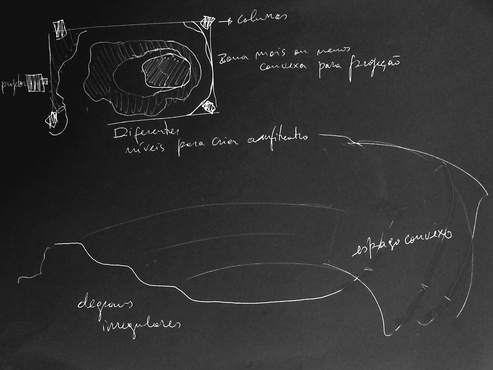 → colunas
projetor
Zona mais ou menos
convexa para projeção
Diferentes
níveis para criar anfiteatro
espaço convexo
degraus
irregulares